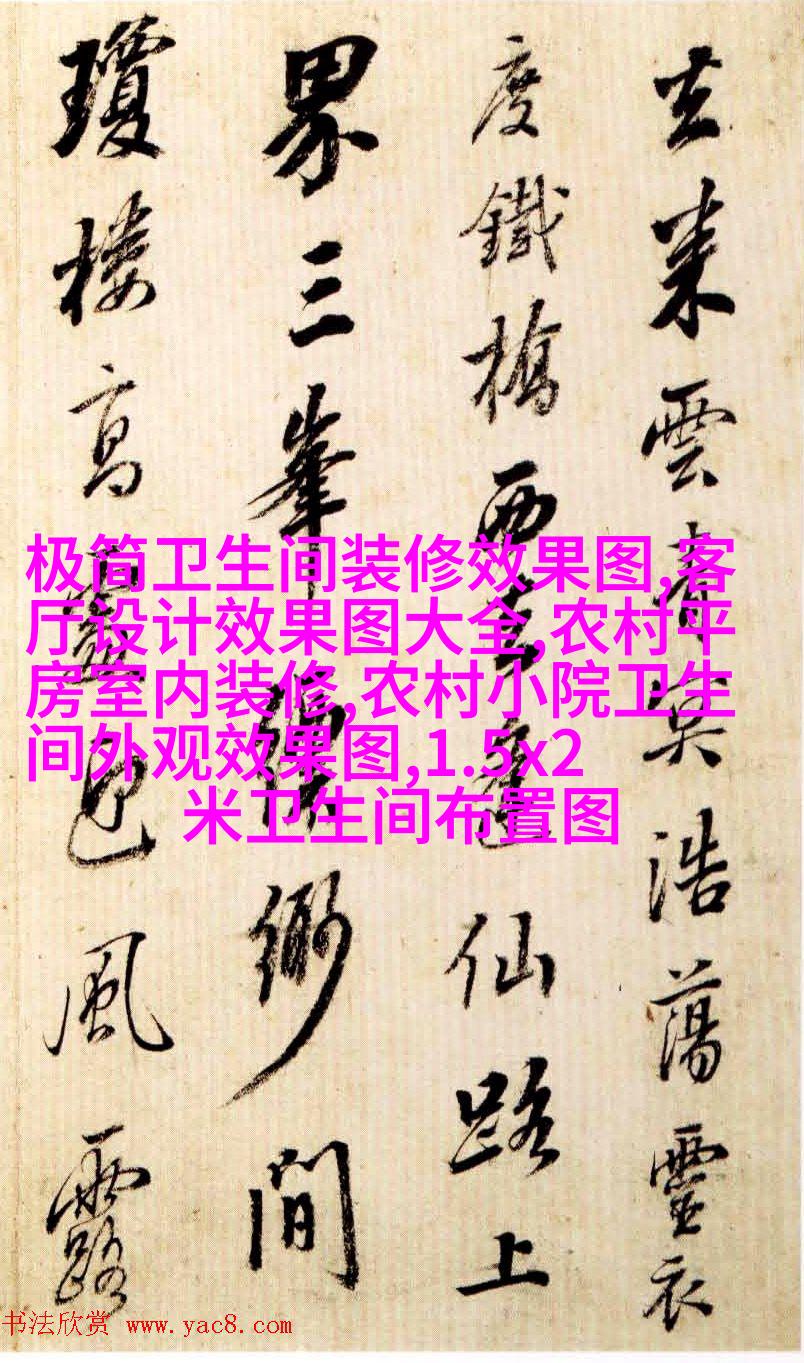 去来雲冥浩蕩靈衣
度鐵橋西去仙路上
界三峯縹緲間
瓊樓高風露
极简卫生间装修效果图,客
厅设计效果图大全,农村平
房室内装修,农村小院卫生
间外观效果图,1.5x2
米卫生间布置图
书法欣赏 www.yac8.com